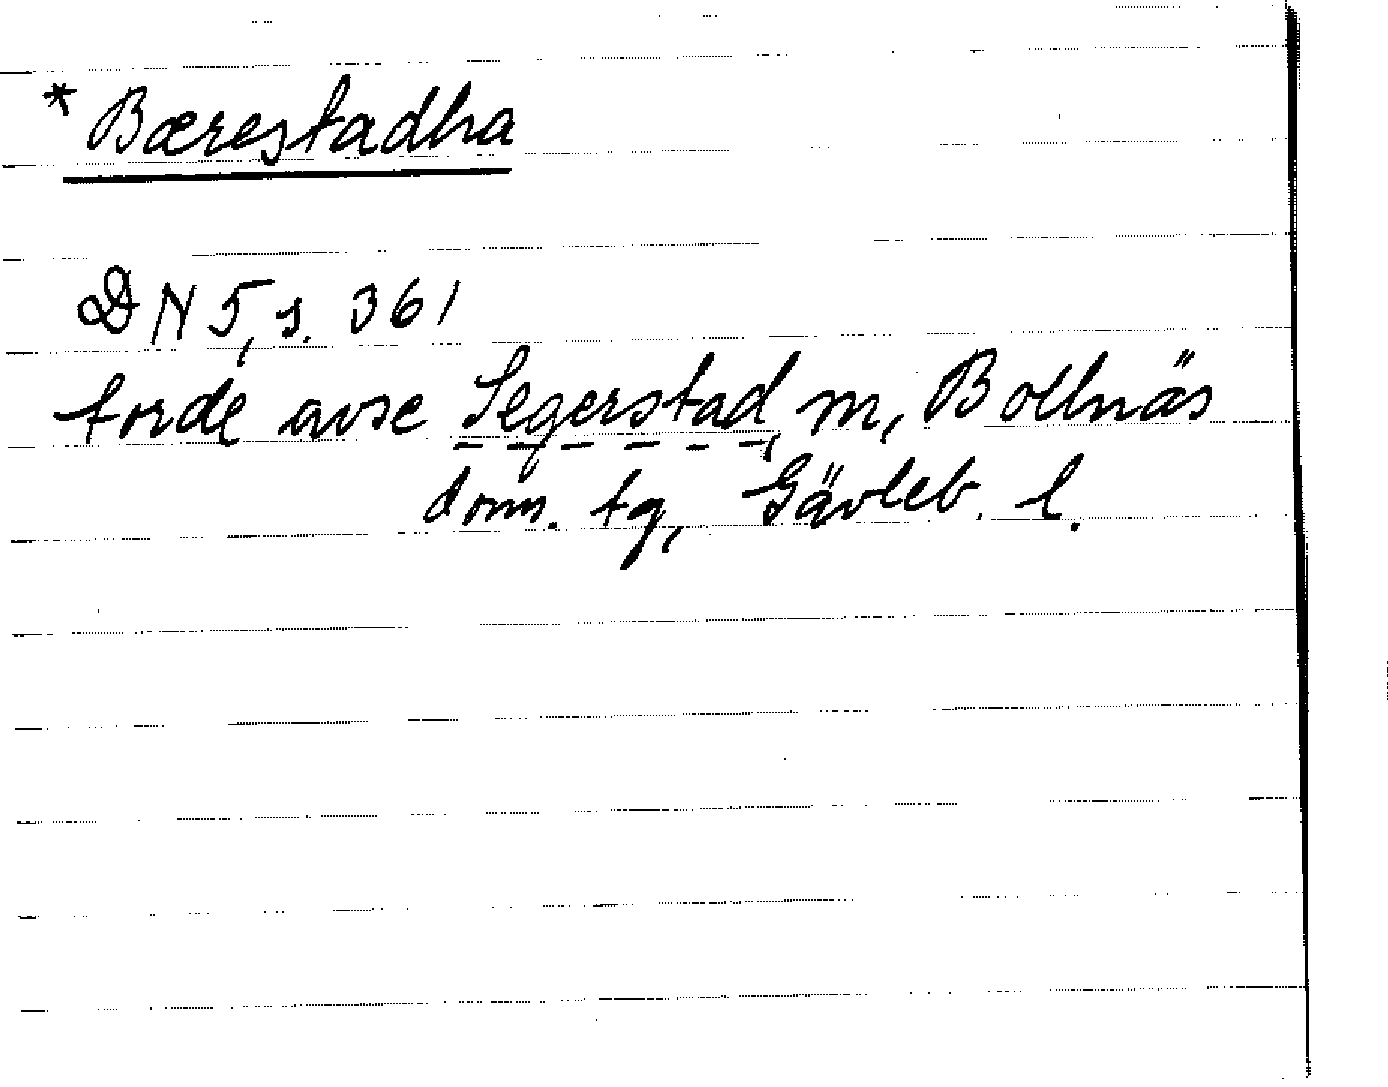 * Bærestadha
DN 5, s. 361
torde avse Segerstad, m, Bollnäs
dom. tg, Gävleb. l.